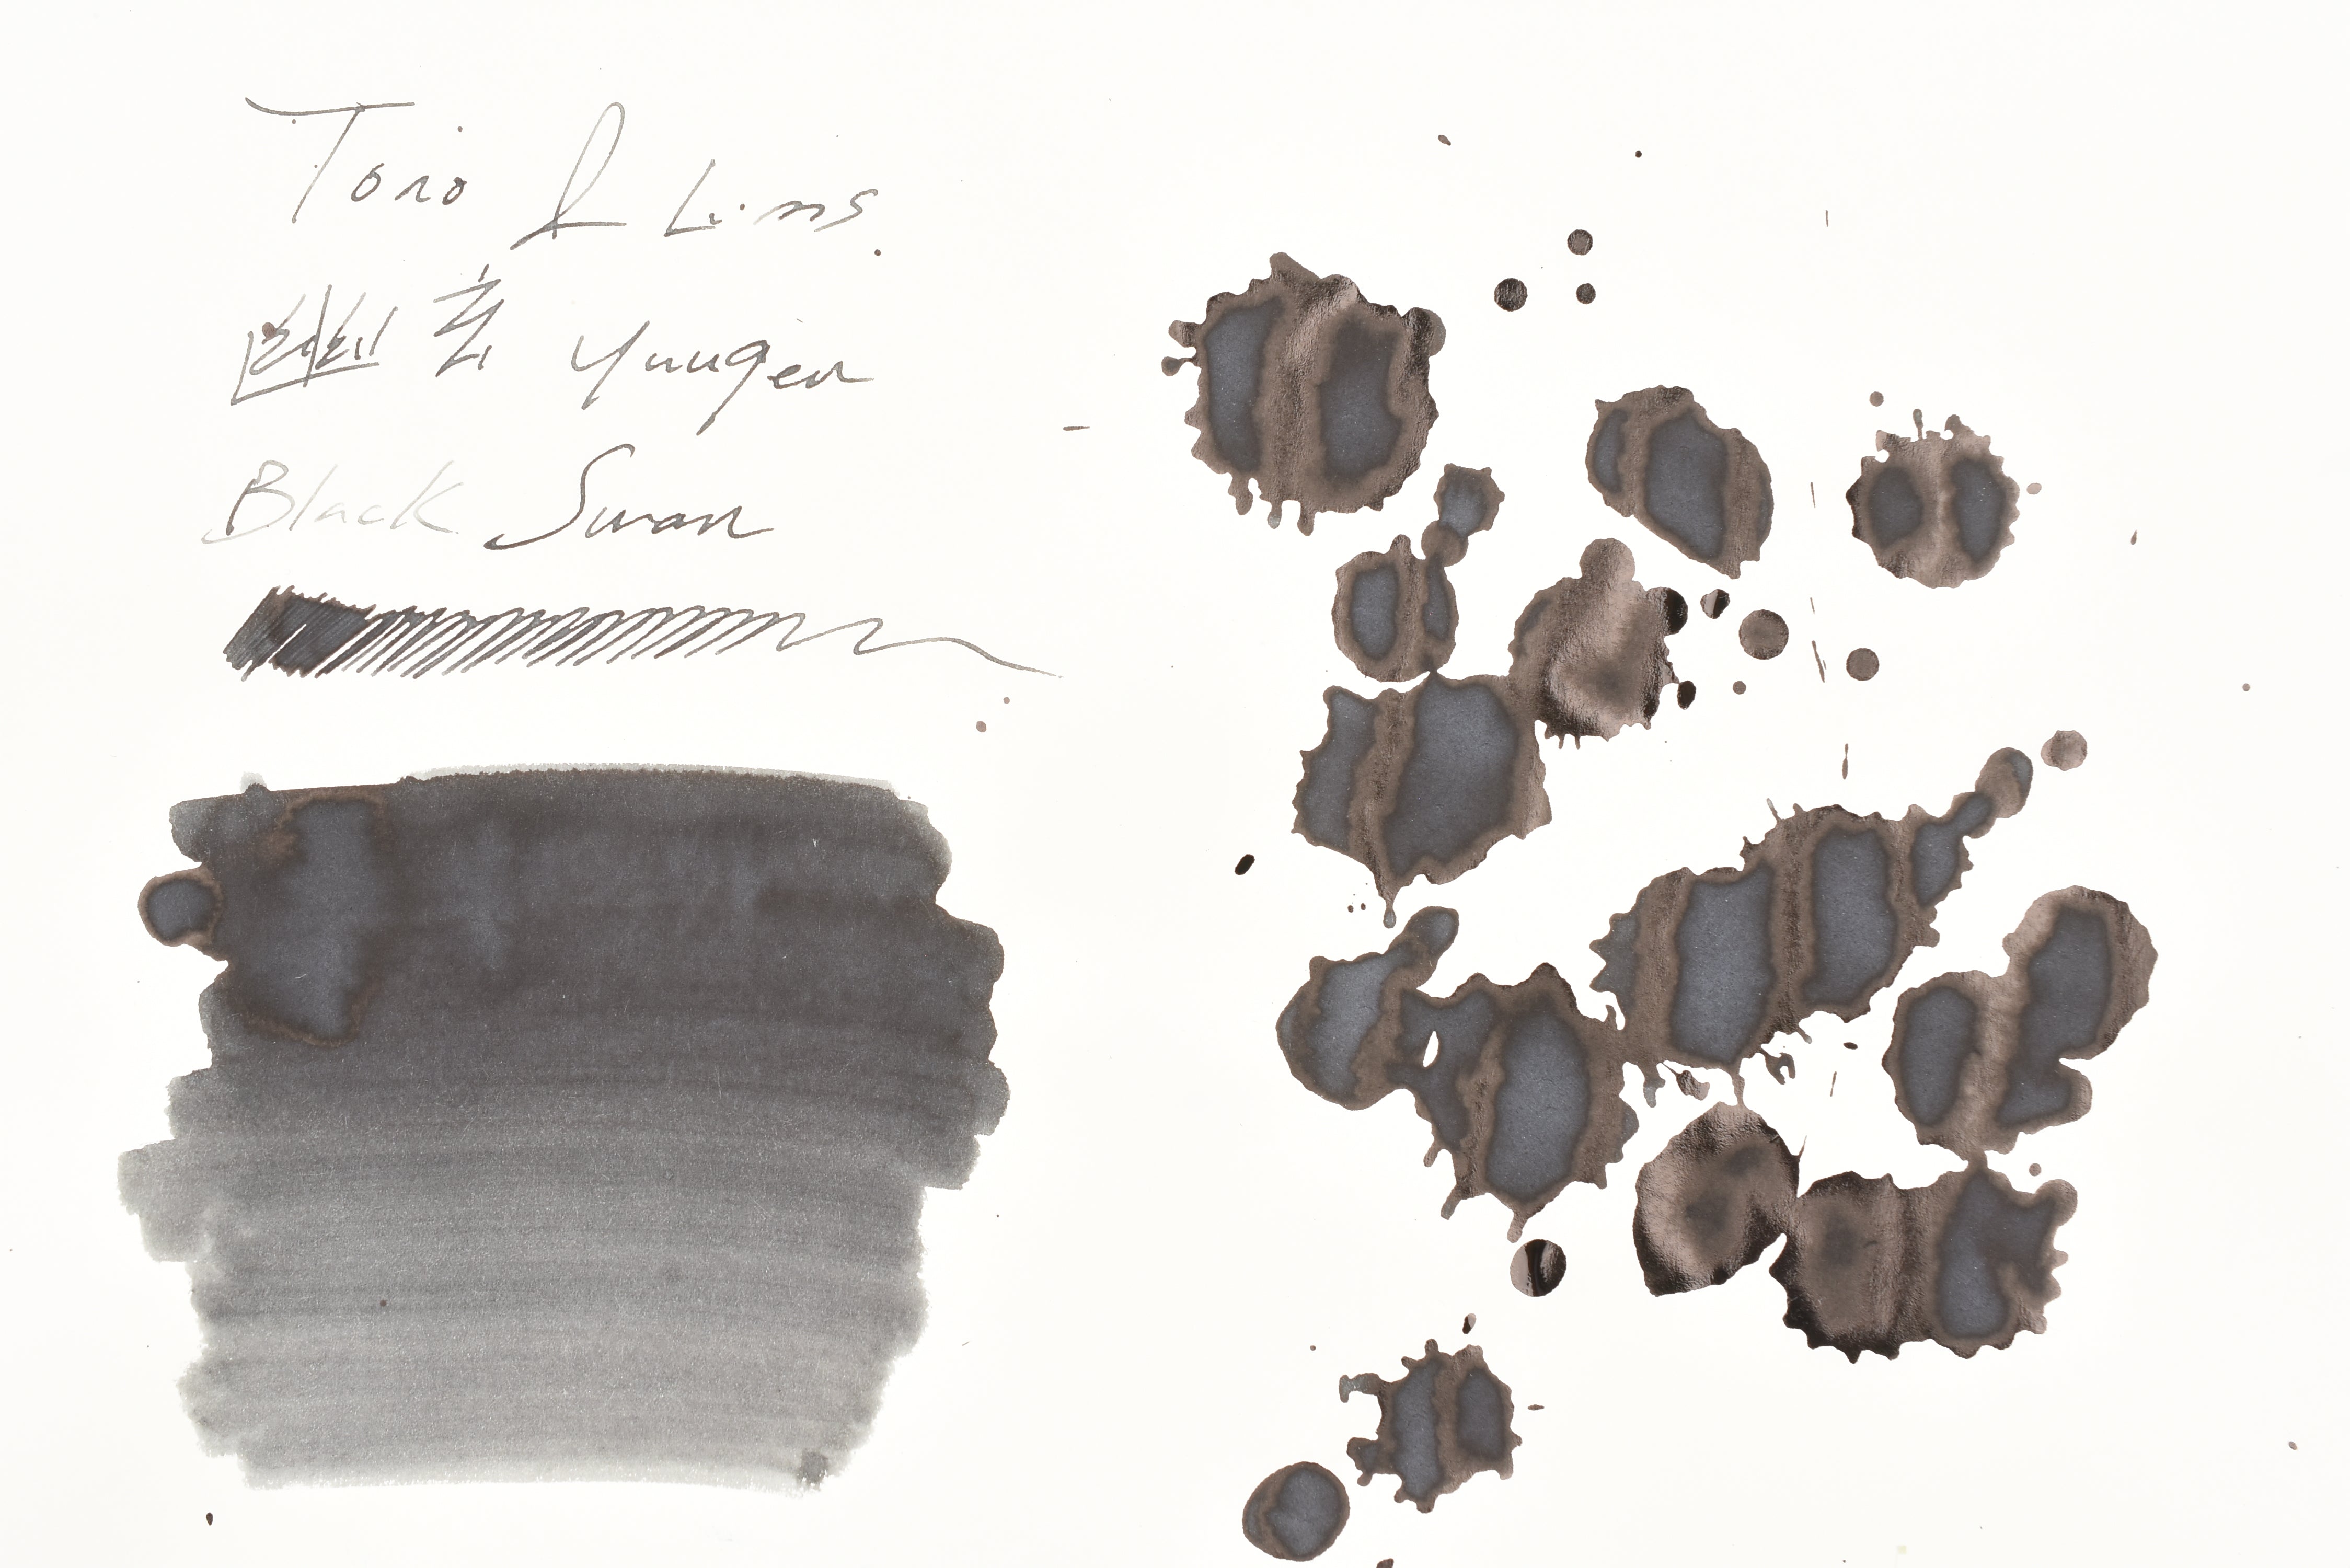 Tono & Lims
幽玄 Yuugen
Black Swan